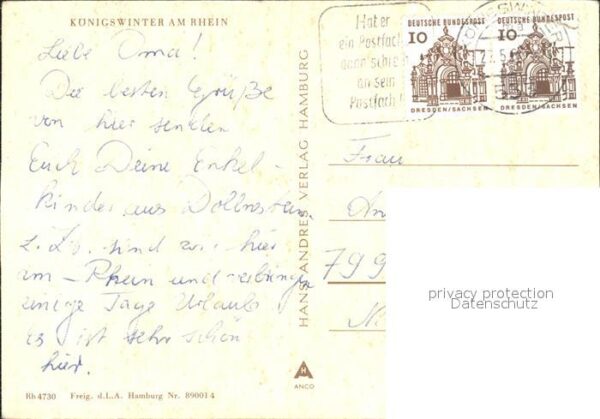 KÖNIGSWINTER AM RHEIN
Liebe Oma!
Die besten Grüße
von hier senden
Euch Deine Enkel-
kinder aus
z. Zt. sind wir hier
am Rhein und verbringen
einige Tage Urlaub
es ist sehr schön
hier.
Rh 4730 Freig. d.L.A. Hamburg Nr. 890014
HANS ANDRES VERLAG HAMBURG
ANCO
Hat er
ein Postfach
dann schreib
an sein
Postfach!
DEUTSCHE BUNDESPOST
10
DRESDEN/SACHSEN
DEUTSCHE BUNDESPOST
10
DRESDEN/SACHSEN
Frau
An
799
privacy protection
Datenschutz